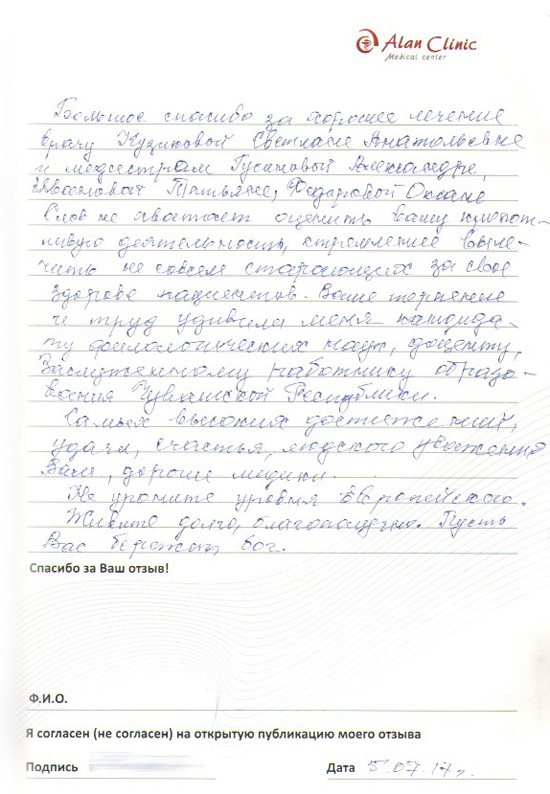 Alan Clinic
Medical center
Большое спасибо за хорошее лечение
врачу Кузиковой Светлане Анатольевне
и медсестрам Гусиновой Александре,
Ивановой Татьяне, Федоровой Оксане
Слов не хватает оценить вашу кропот-
ливую деятельность, стремление выле-
чить не совсем старающихся за свое
здорове пациентов. Ваше терпение
и труд удивила меня кандида-
ту филологических наук, доценту,
Заслуженному работнику образо-
вания Чувашской Республики.
Самых высоких достижений,
удачи, счастья, людского уважения
Вам, дорогие медики.
Не уроните уровня Европейского.
Живите долго, благополучно. Пусть
Вас бережет бог.
Спасибо за Ваш отзыв!
Ф.И.О.
Я согласен (не согласен) на открытую публикацию моего отзыва
Подпись
Дата 5.07.17г.